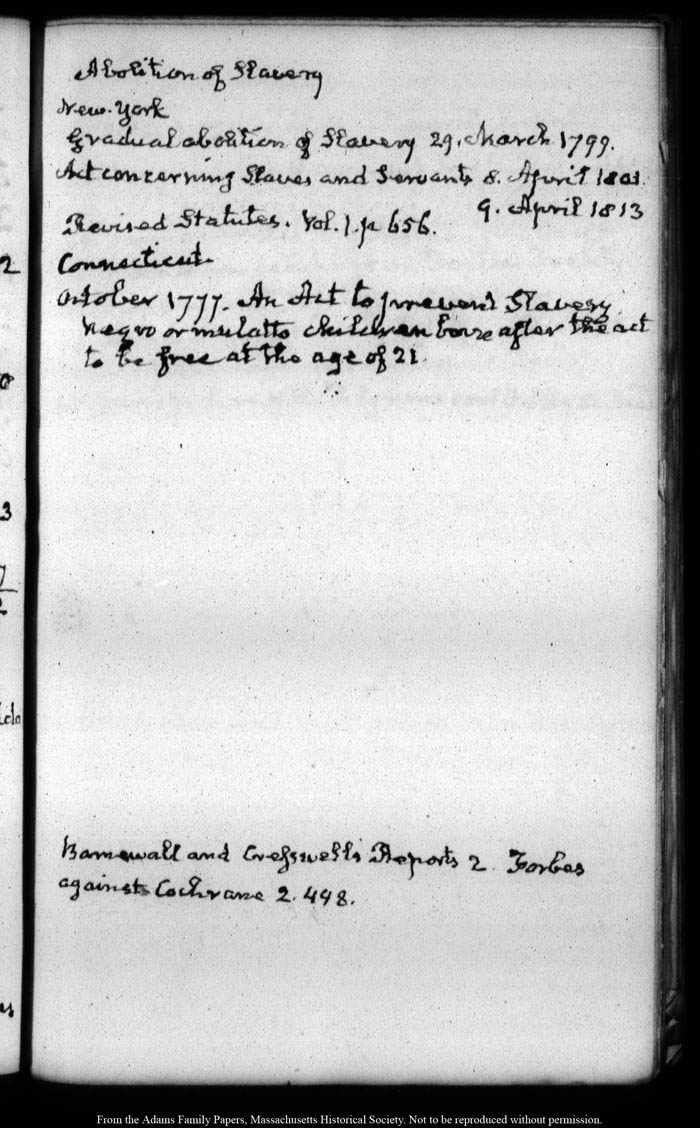 Abolition of Slavery
New. York
Gradual abolition of Slavery 29. March 1799.
Act concerning Slaves and Servants 8. April 1801.
9. April 1813
Revised Statutes. Vol. 1. p 656.
Connecticut.
October 1777. An Act to prevent Slavery
negro or mulatto children born after the act
to be free at the age of 21.
Barnewall and Cresswell's Reports 2. Forbes
against Cochrane 2. 448.
2
0
3
7
From the Adams Family Papers, Massachusetts Historical Society. Not to be reproduced without permission.